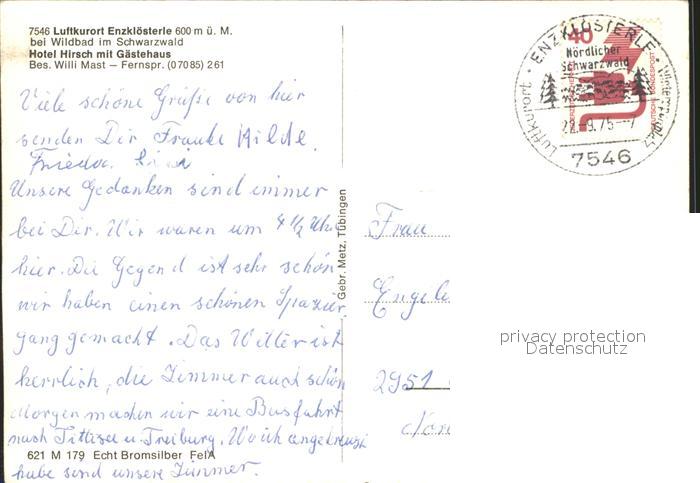 7546 Luftkurort Enzklösterle 600 m ü. M.
bei Wildbad im Schwarzwald
Hotel Hirsch mit Gästehaus
Bes. Willi Mast – Fernspr. (07085) 261
Viele schöne Grüße von hier
senden Dir Frauke Hilde.
Frieda.
Unsere Gedanken sind immer
bei Dir. Wir waren um 4 ½ Uhr
hier. Die Gegend ist sehr schön
wir haben einen schönen Spazier
gang gemacht. Das Wetter ist
herrlich, die Zimmer auch schön
Morgen machen wir eine Busfahrt
nach Tittisee u. Treiburg. Wo ich angekreuzt
habe sind unsere Zimmer.
621 M 179 Echt Bromsilber FelA
Gebr. Metz, Tübingen
40
DEUTSCHE BUNDESPOST
Luftkurort · ENZKLÖSTERLE · Wintersportplatz
Nördlicher
Schwarzwald
-9.75--7
7546
Frau
Engel
2951
privacy protection
Datenschutz